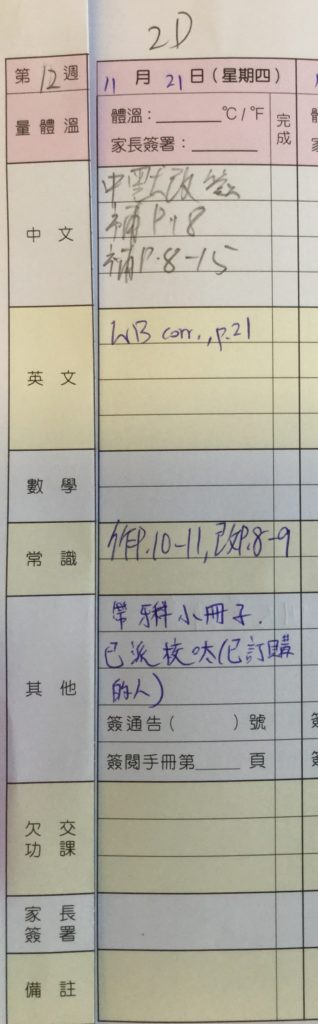 2D
第12週 11月21日(星期四)
量體溫 體溫：______°C/°F 完成
家長簽署：______
中文 中默改簽
補P.18
補P.8-15
英文 WB corr., p.21
數學
常識 作P.10-11,改P.8-9
其他 帶牙科小冊子.
已派校呔(已訂購
的人)
簽通告( )號
簽閱手冊第____頁
欠交功課
家長簽署
備註